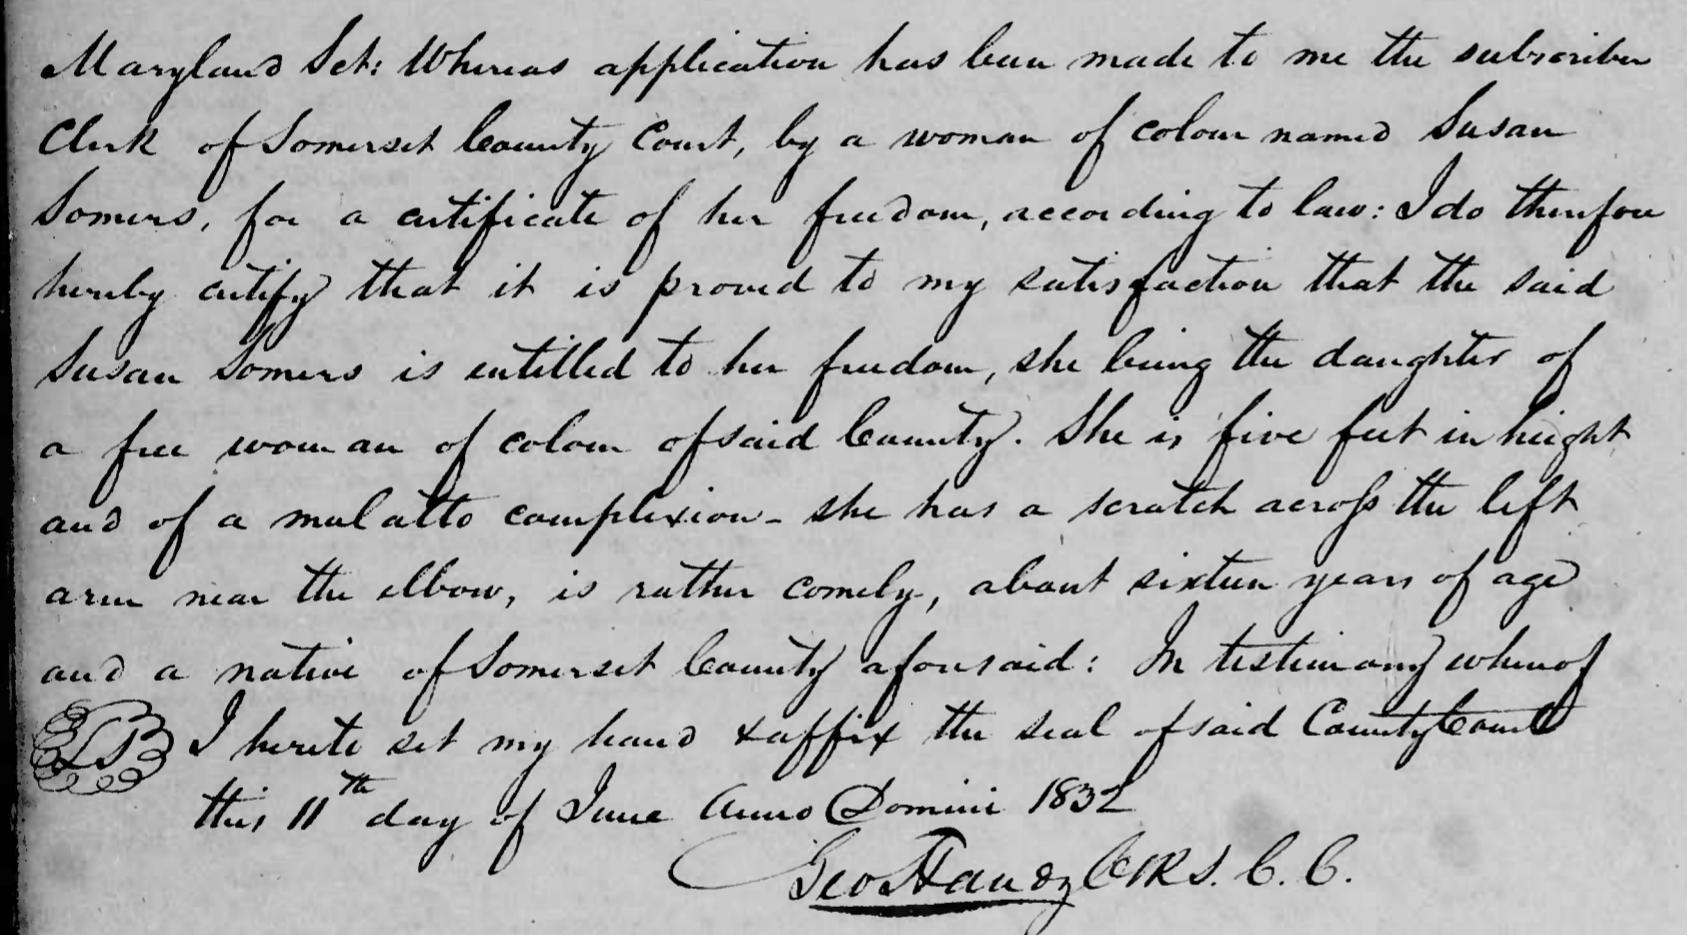 Maryland Sct: Whereas application has been made to me the subscriber
Clerk of Somerset County Court, by a woman of colour named Susan
Somers, for a certificate of her freedom, according to law: I do therefore
hereby certify that it is proved to my satisfaction that the said
Susan Somers is entitled to her freedom, she being the daughter of
a free woman of colour of said County. She is five feet in height
and of a mulatto complexion - she has a scratch across the left
arm near the elbow, is rather comely, about sixteen years of age
and a native of Somerset County aforesaid: In testimony whereof
LS I hereto set my hand & affix the seal of said County Court
this 11th day of June Anno Domini 1832
Geo Handy Clk S. C. C.